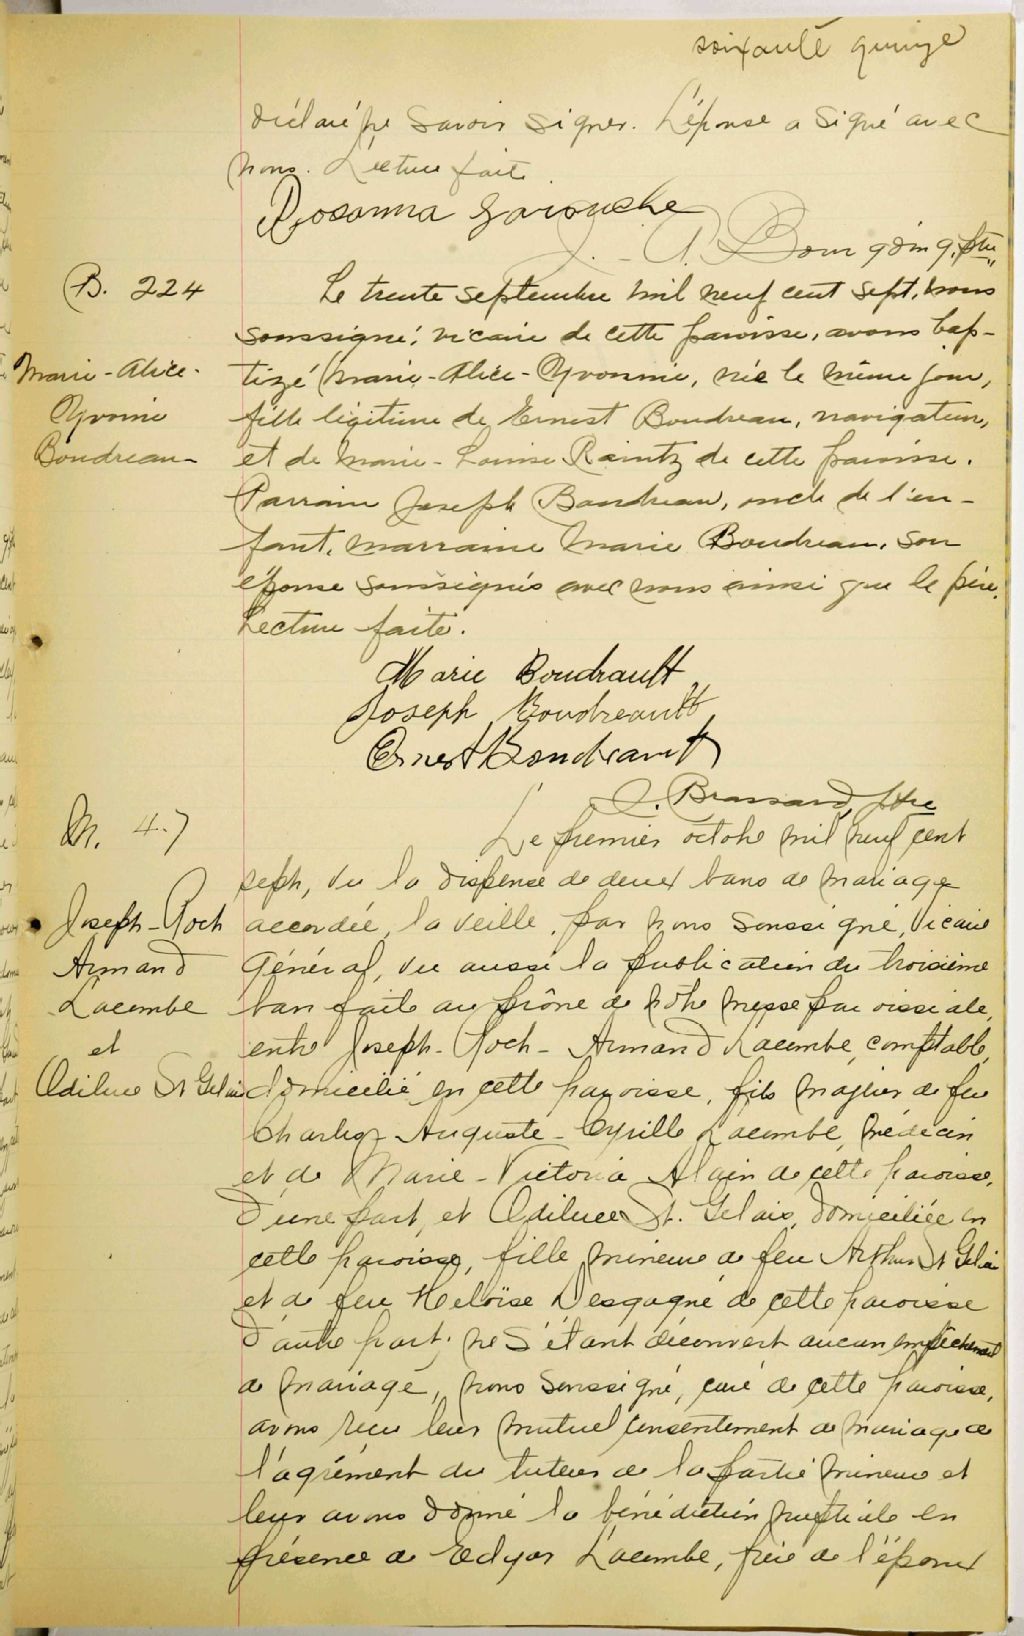 soixante quinze
déclaré ne savoir signer. L'épouse a signé avec
nous. Lecture faite.
Rosanna Larouche
Bourgoing, ptre
B. 224
Le trente septembre mil neuf cent sept, nous
soussigné, vicaire de cette paroisse, avons bap-
Marie-Alice-
tizé Marie-Alice-Yvonnie, née le même jour,
Yvonnie
fille légitime de Ernest Boudreau, navigateur,
Boudreau
et de Marie-Louise Raintz de cette paroisse.
Parrain Joseph Boudreau, oncle de l'en-
fant, marraine Marie Boudreau, son
épouse soussignés avec nous ainsi que le père.
Lecture faite.
Marie Boudrault
Joseph Boudreault
Ernest Boudrault
Brassard, ptre
M. 47
Le premier octobre mil neuf cent
sept, vu la dispense de deux bans de mariage
Joseph-Roch
accordée, la veille, par nous soussigné, Vicaire
Armand
Général, vu aussi la publication du troisième
Lacombe
ban faite au prône de notre messe paroissiale,
et
entre Joseph-Roch-Armand Lacombe, comptable,
Odiluce St Gelais
domicilié en cette paroisse, fils majeur de feu
Charles-Auguste-Cyrille Lacombe, médecin
et de Marie-Victoria Alain de cette paroisse,
d'une part, et Odiluce St. Gelais, domiciliée en
cette paroisse, fille mineure de feu Arthur St Gelais
et de feu Heloïse Desgagné de cette paroisse
d'autre part; ne s'étant découvert aucun empêchement
de mariage, nous soussigné, curé de cette paroisse,
avons reçu leur mutuel consentement de mariage de
l'agrément du tuteur de la partie mineure et
leur avons donné la bénédiction nuptiale en
présence de Edgar Lacombe, frère de l'époux